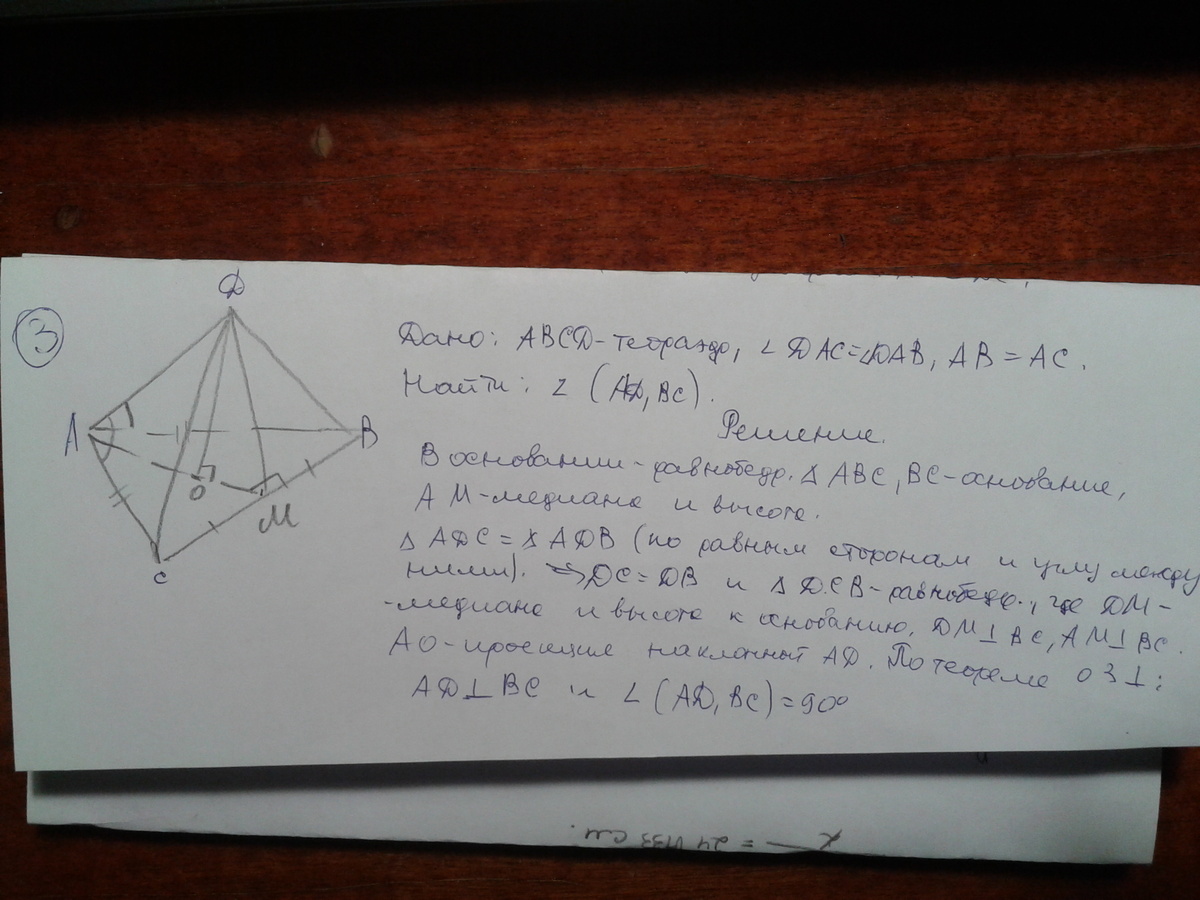 3
D
A
B
O
M
C
Дано: ABCD-тетраэдр, ∠DAC=∠DAB, AB=AC.
Найти: ∠(AD,BC).
Решение.
В основании-равнобедр. Δ ABC, BC-основание,
AM-медиана и высота.
Δ ADC = Δ ADB (по равным сторонам и углу между
ними). ⇒ DC=DB и Δ DCB-равнобедр., где DM-
-медиана и высота к основанию. DM⊥BC, AM⊥BC.
AO-проекция наклонный AD. По теореме о 3⊥:
AD⊥BC и ∠(AD,BC)=90°
= 24√133 см.